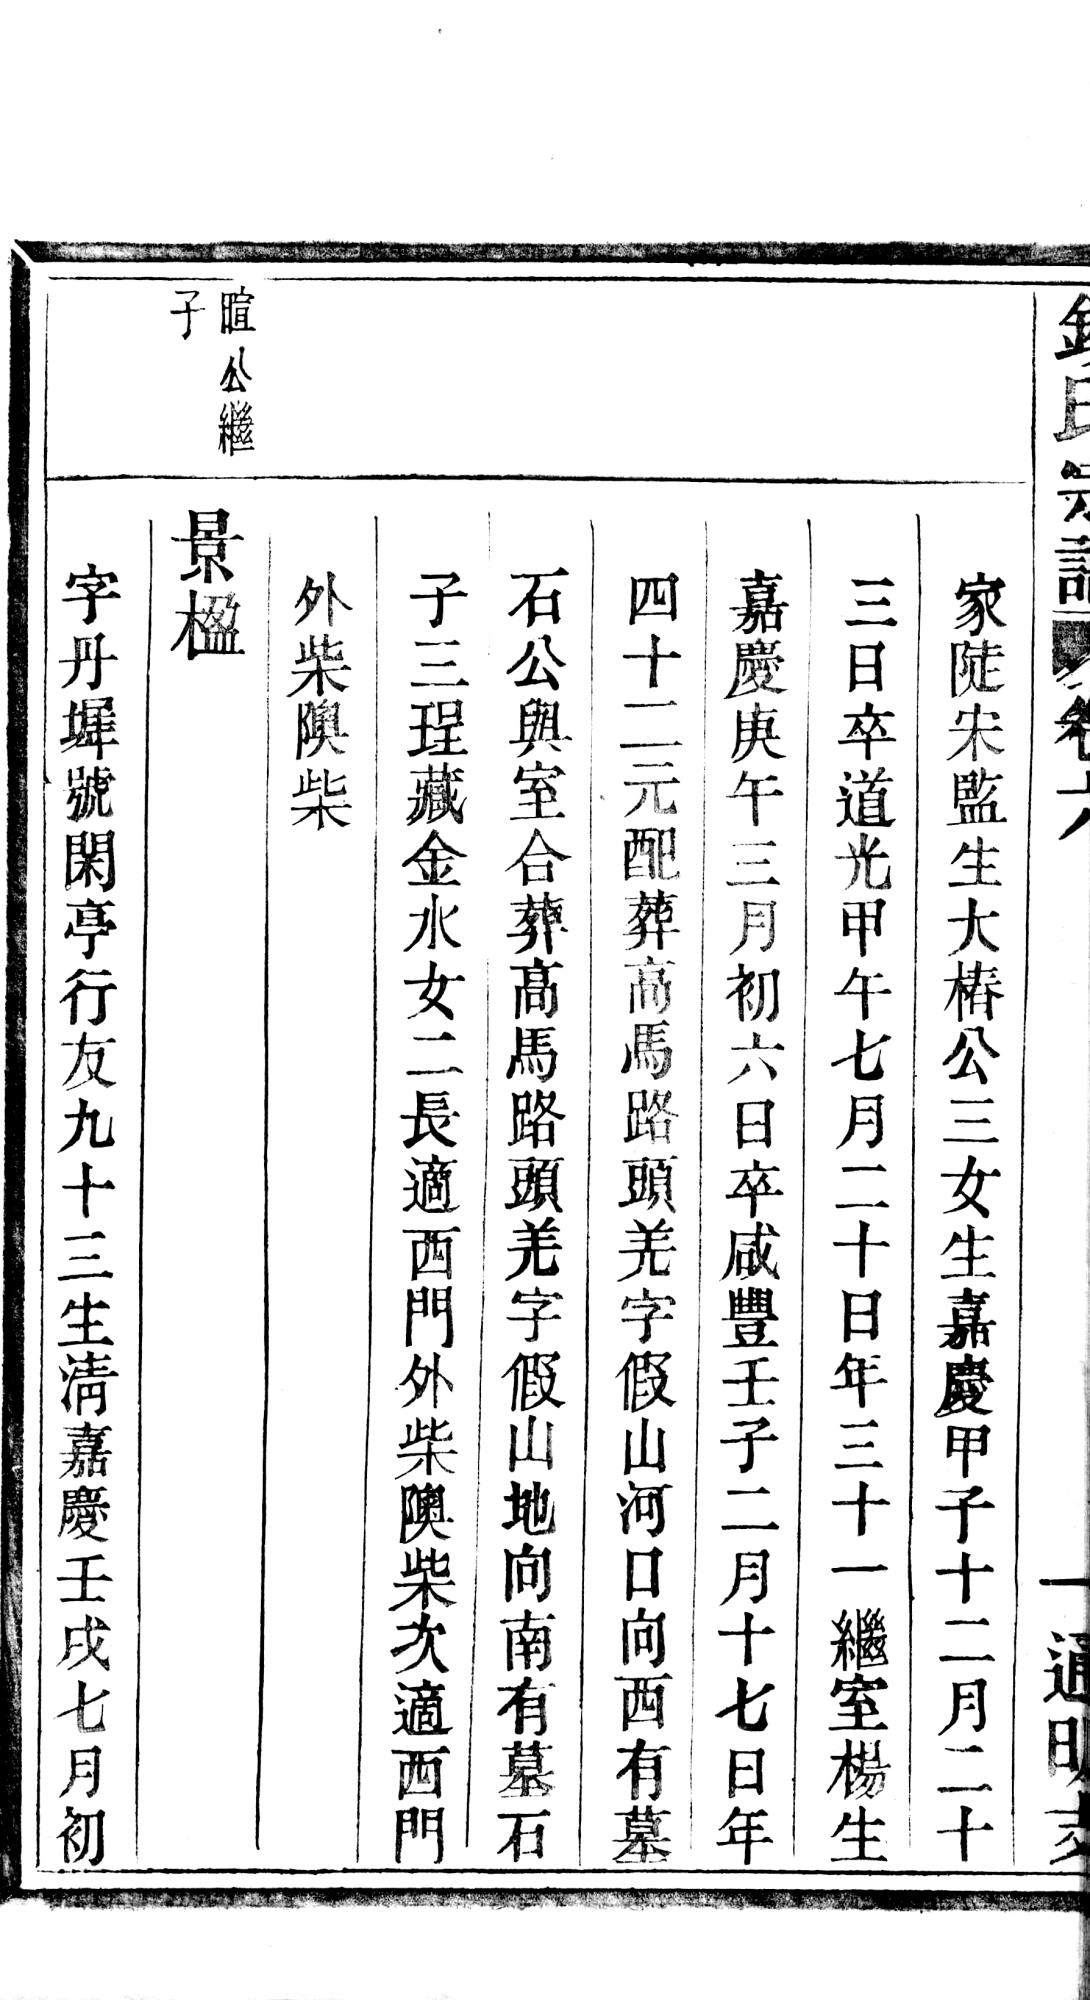 氏宗譜
卷六
一
通明
家陡宋監生大椿公三女生嘉慶甲子十二月二十
三日卒道光甲午七月二十日年三十一繼室楊生
嘉慶庚午三月初六日卒咸豐壬子二月十七日年
四十二元配葬高馬路頭羌字假山河口向西有墓
石公與室合葬高馬路頭羌字假山地向南有墓石
子三珵藏金水女二長適西門外柴隩柴次適西門
外柴隩柴
暄公繼
子
景楹
字丹墀號閑亭行友九十三生清嘉慶壬戌七月初